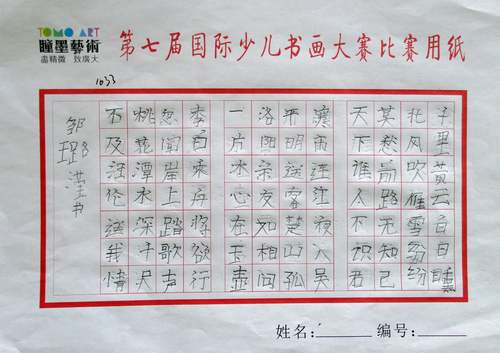 TOMO ART
瞳墨藝術
盡精微 致廣大
第七届国际少儿书画大赛比赛用纸
1033
千里黄云白日曛
北风吹雁雪纷纷
莫愁前路无知己
天下谁人不识君
寒雨连江夜入吴
平明送客楚山孤
洛阳亲友如相问
一片冰心在玉壶
李白乘舟将欲行
忽闻岸上踏歌声
桃花潭水深千尺
不及汪伦送我情
邹璐滢书
姓名: 编号: